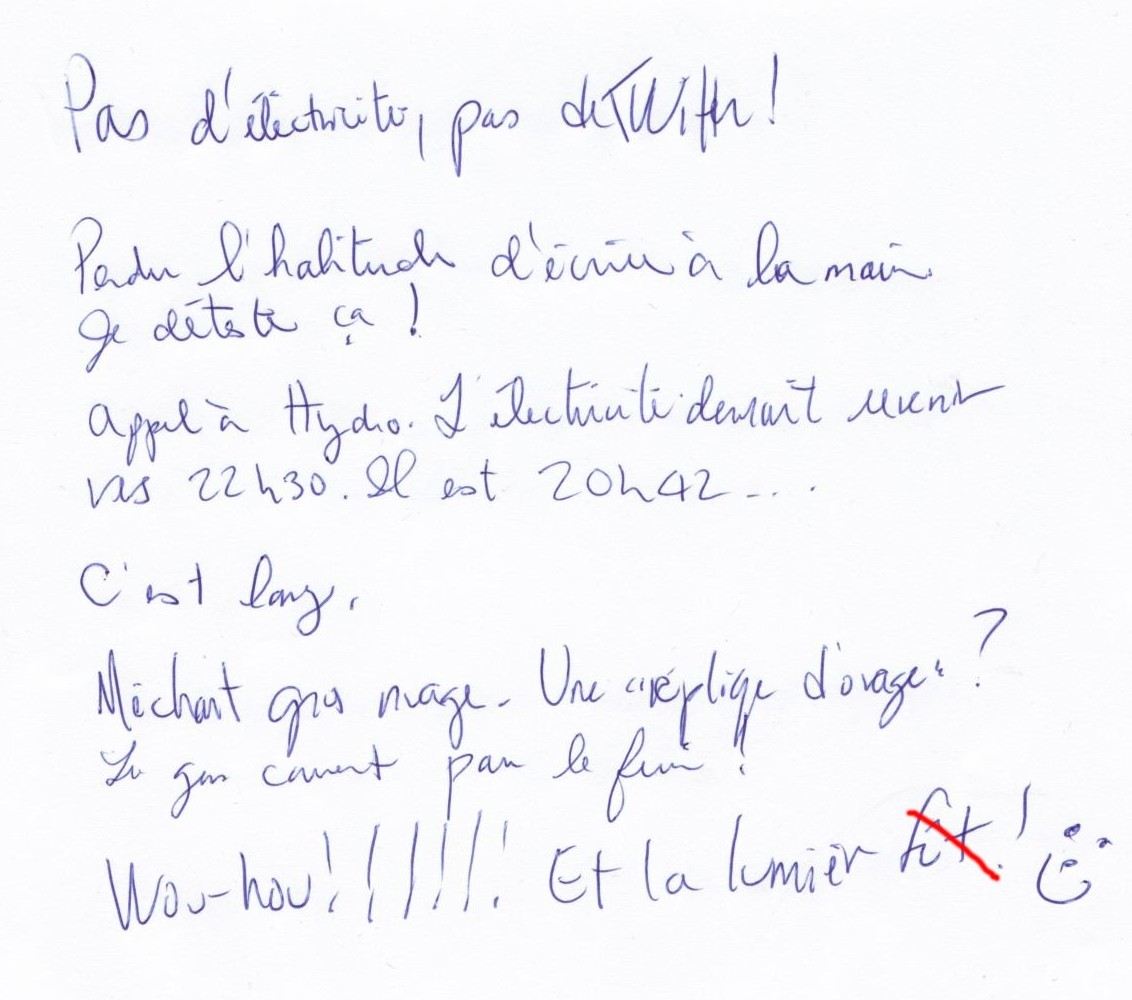 Pas d'électricité, pas de TWitter!
Perdu l'habitude d'écrire à la main.
Je déteste ça !
Appel à Hydro. L'électricité devrait revenir
vers 22h30. Il est 20h42...
C'est long.
Méchant gros nuage. Une "réplique d'orage" ?
Les gens courent pour le fuir !
Wou-hou!!!!!!! Et la lumière fût! :)